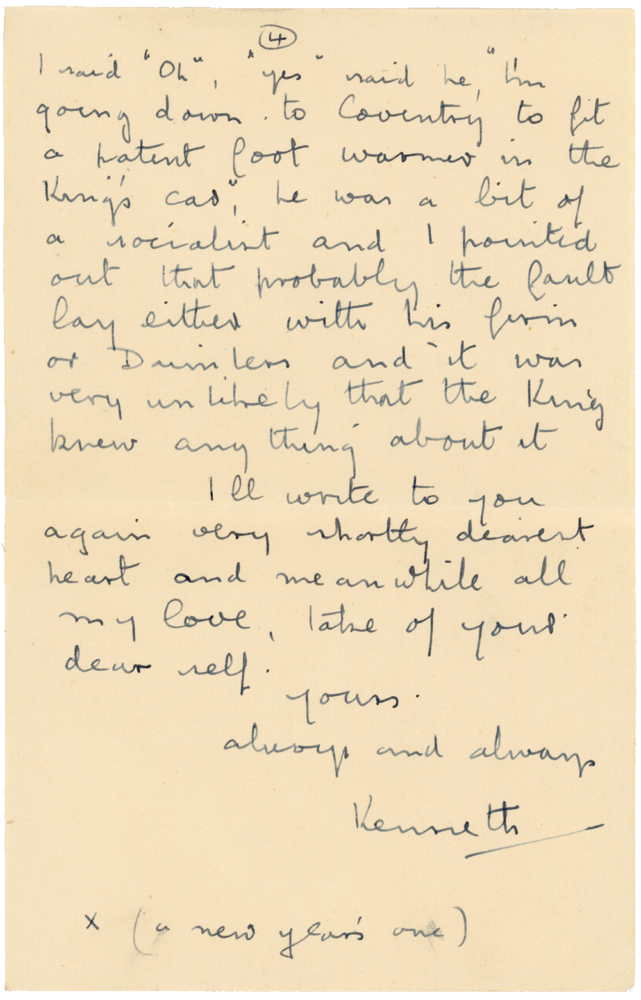 4
I said "Oh", "yes" said he, "I'm
going down to Coventry to fit
a patent foot warmer in the
King's car", he was a bit of
a socialist and I pointed
out that probably the fault
lay either with his firm
or Daimlers and it was
very unlikely that the King
knew anything about it
I'll write to you
again very shortly dearest
heart and meanwhile all
my love, take of your
dear self.
yours.
always and always
Kenneth
x (a new year's one)